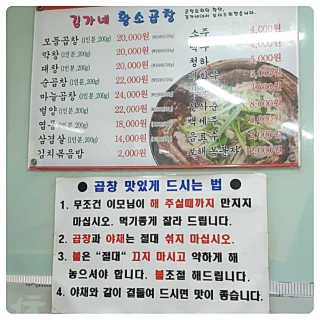 김가네 황소곱창
모듬곱창(1인분,200g) 20,000원
막창(1인분,200g) 20,000원
대창(1인분,200g) 20,000원
순곱창(1인분,200g) 22,000원
마늘곱창(1인분,200g) 24,000원
벌양(1인분,200g) 22,000원
염통(1인분,200g) 18,000원
삼겹살(1인분,200g) 14,000원
김치볶음밥 2,000원
소주 4,000원
맥주
청하
백세주
음료수
● 곱창 맛있게 드시는 법 ●
1. 무조건 이모님이 해 주실때까지 만지지
마십시오. 먹기좋게 잘라 드립니다.
2. 곱창과 야채는 절대 섞지 마십시오.
3. 불은 "절대" 끄지 마시고 약하게 해
놓으셔야 합니다. 불조절 해드립니다.
4. 야채와 같이 곁들여 드시면 맛이 좋습니다.